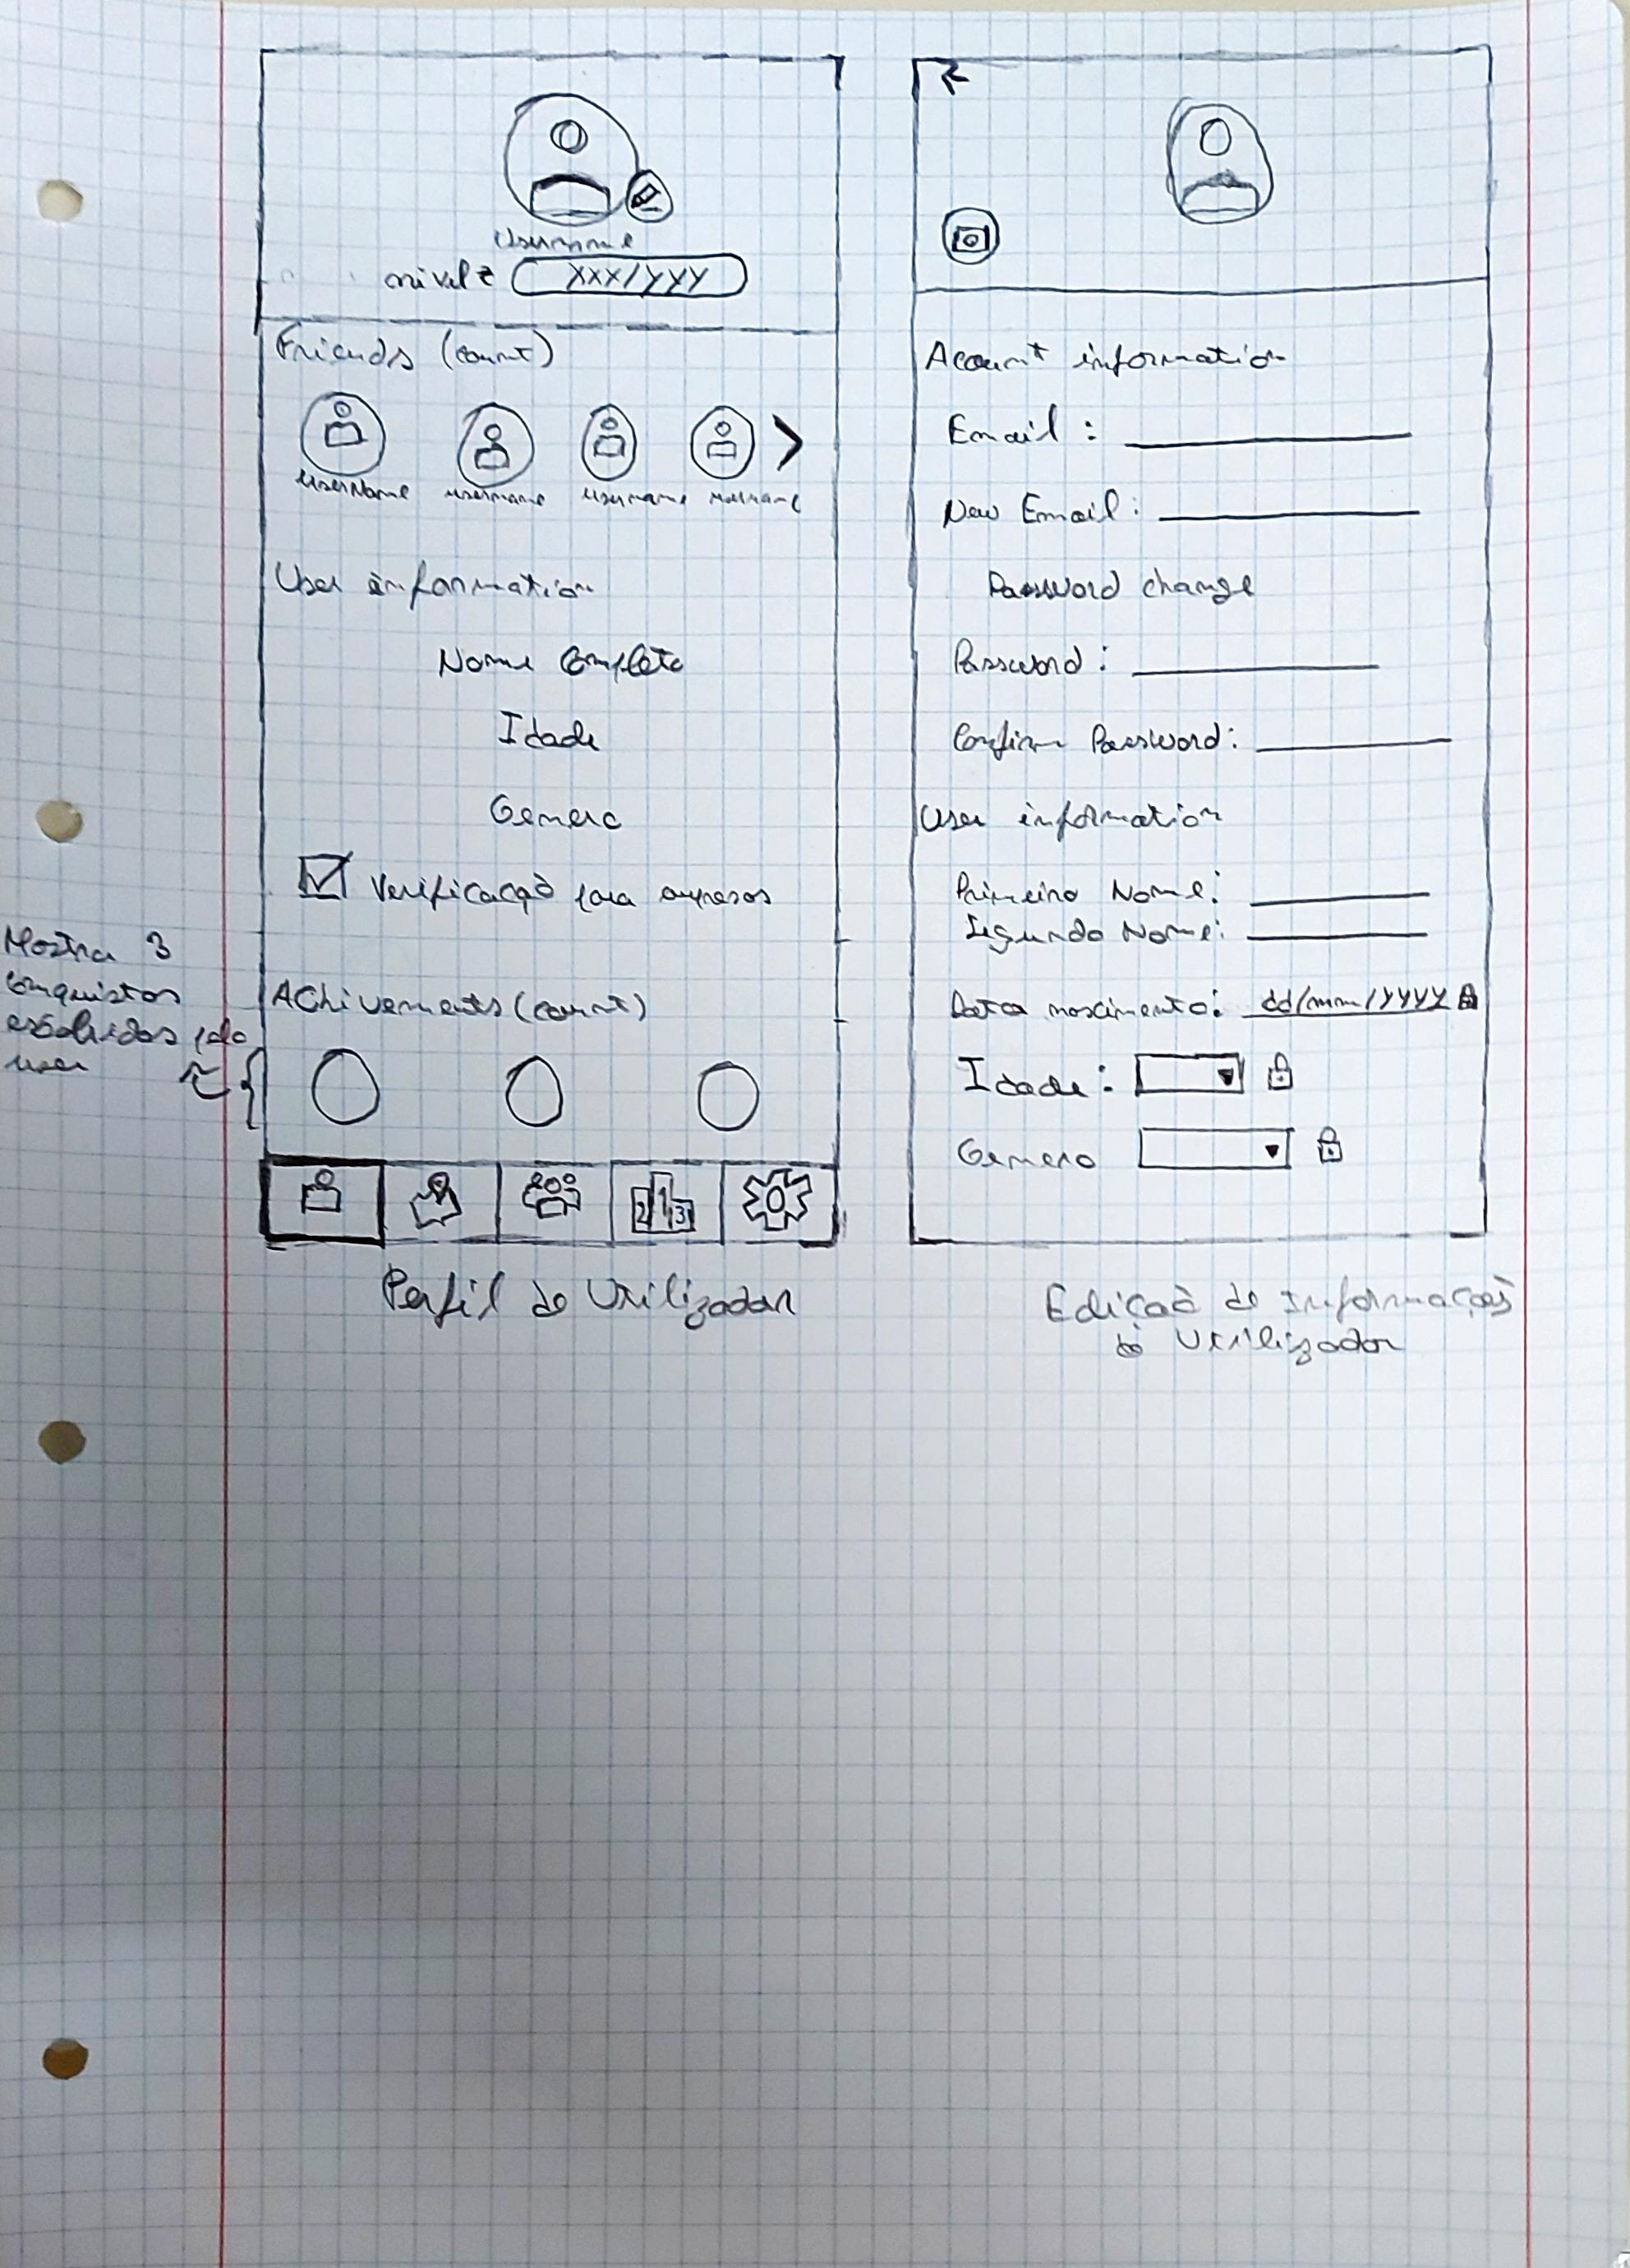 Username
nivel
XXX/YYY
Friends (count)
userName username username username
User information
Nome Completo
Idade
Genero
Verificação para empresas
Mostra 3
conquistas
escolhidas pelo
user
AChivements (count)
2 1 3
Perfil do Utilizador
Account information
Email :
New Email :
Password change
Password :
Confirm Password :
User information
Primeiro Nome :
Segundo Nome :
Data nascimento : dd/mm/YYYY
Idade :
Genero
Edição de Informações
do Utilizador